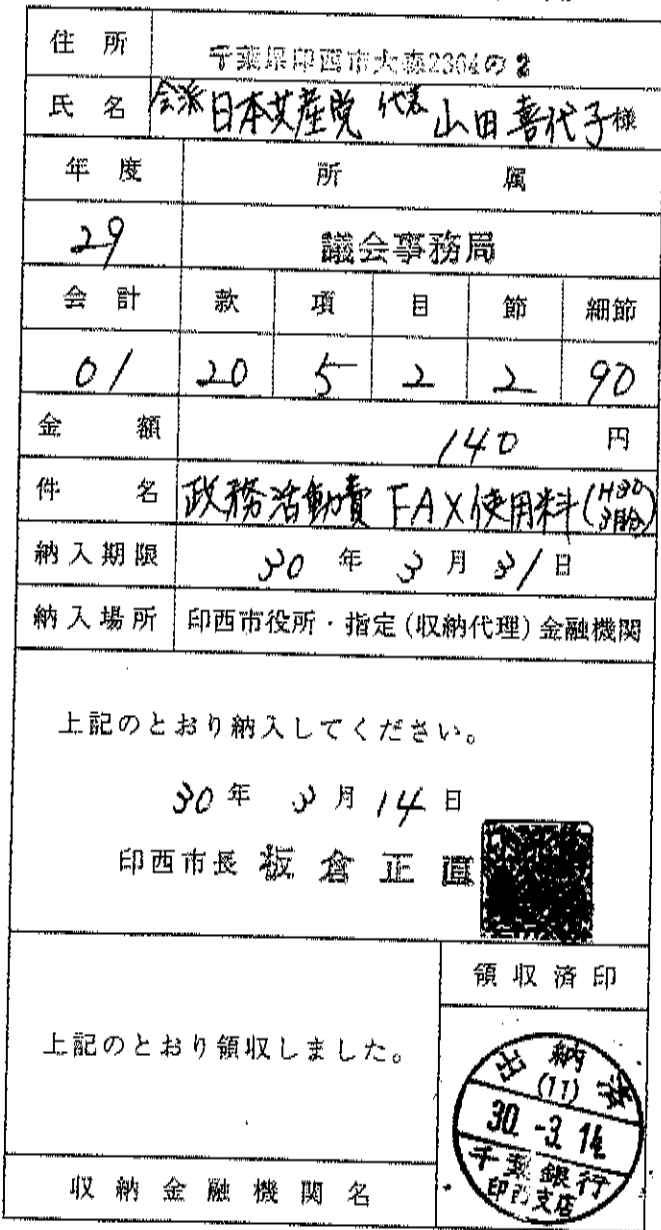 住所 千葉県印西市大森2364の2
氏名 会派 日本共産党 代表 山田喜代子様
年度 所属
29 議会事務局
会計 款 項 目 節 細節
01 20 5 2 2 90
金額 140 円
件名 政務活動費 FAX使用料(H30 3月分)
納入期限 30 年 3 月 31 日
納入場所 印西市役所・指定(収納代理)金融機関
上記のとおり納入してください。
30 年 3 月 14 日
印西市長 板倉正直
領収済印
上記のとおり領収しました。
出納済
(11)
30.-3.14
千葉銀行
印西支店
収納金融機関名